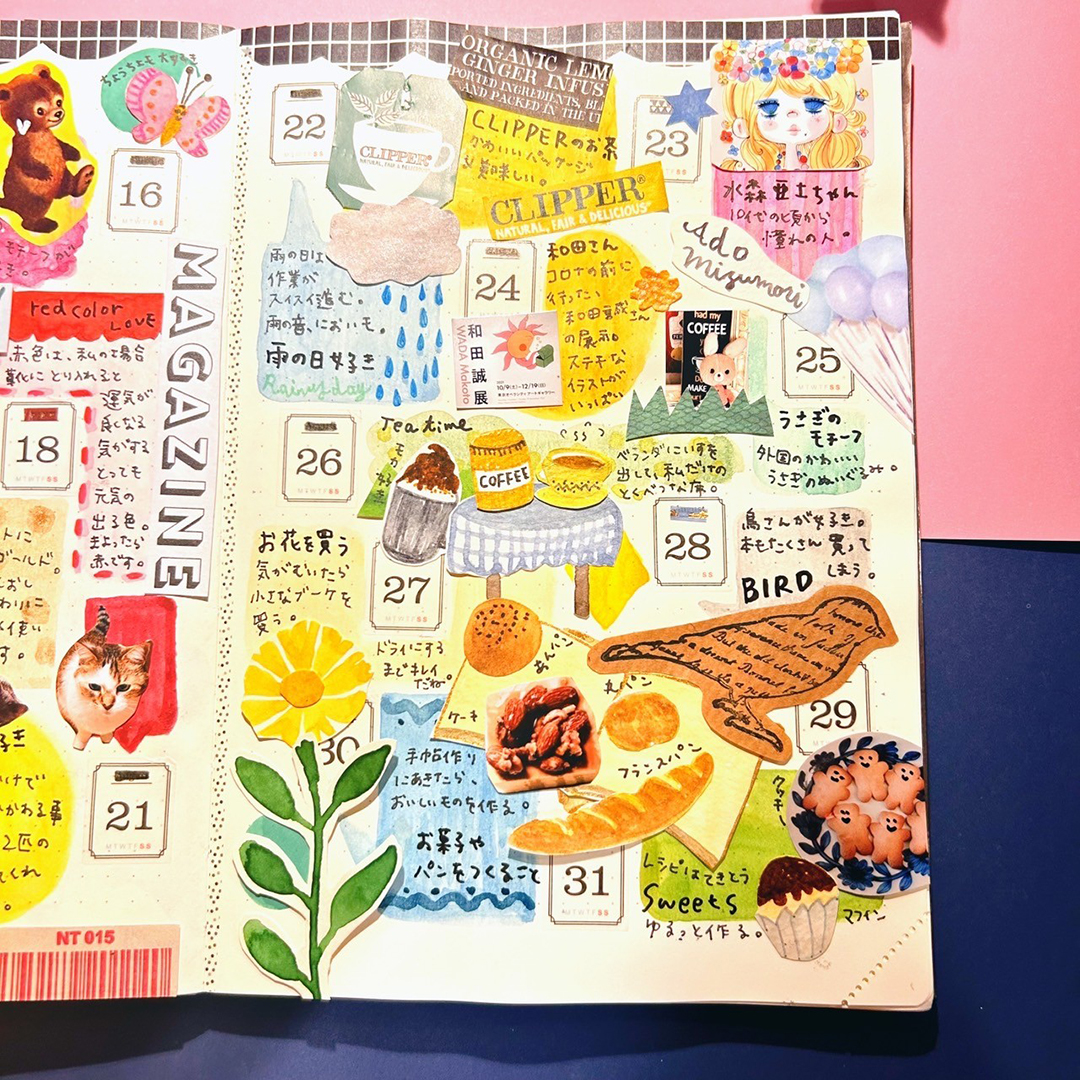 ちょうちょも大好き
16
モチーフが
red color
LOVE
赤色は、私の場合
靴にとり入れると
運気が
良くなる
気がする
とっても
元気の
出る色。
まよったら
赤です。
18
MTWTFSS
MAGAZINE
21
MTWTFSS
NT 015
22
CLIPPER
NATURAL, FAIR & DELICIOUS
ORGANIC LEM
GINGER INFUS
PORTED INGREDIENTS, BL
AND PACKED IN THE U
CLIPPERのお茶
かわいいパッケージ
美味しい。
CLIPPER
NATURAL, FAIR & DELICIOUS
23
水森亜土ちゃん
10代の頃から
憧れの人。
Ado
Mizumori
雨の日は
作業が
スイスイ進む。
雨の音、においモ。
雨の日好き
Rainy day
24
和田さん
コロナの前に
行ったい
和田誠さん
の展示。
ステキな
イラストが
いっぱい
和田誠展
WADA Makoto
10/9(土)–12/19(日)
had my
COFFEE
MAKE
25
MTWTFSS
うさぎの
モチーフ
外国のかわいい
うさぎのぬいぐるみ。
26
MTWTFSS
Tea time
モカ好き
COFFEE
ベランダにいすを
出して、私だけの
とくべつな席。
27
MTWTFSS
お花を買う
気がむいたら
小さなブーケを
買う。
ドライにする
までキレイ
だね。
28
MTWTFSS
鳥さんが好き。
本もたくさん買って
しまう。
BIRD
29
30
あんパン
丸パン
ケーキ
フランスパン
手帖作り
にあきたら、
おいしいものを作る。
お菓子や
パンをつくること
31
MTWTFSS
クッキー
レシピはてきとう
Sweets
ゆるっと作る。
マフィン